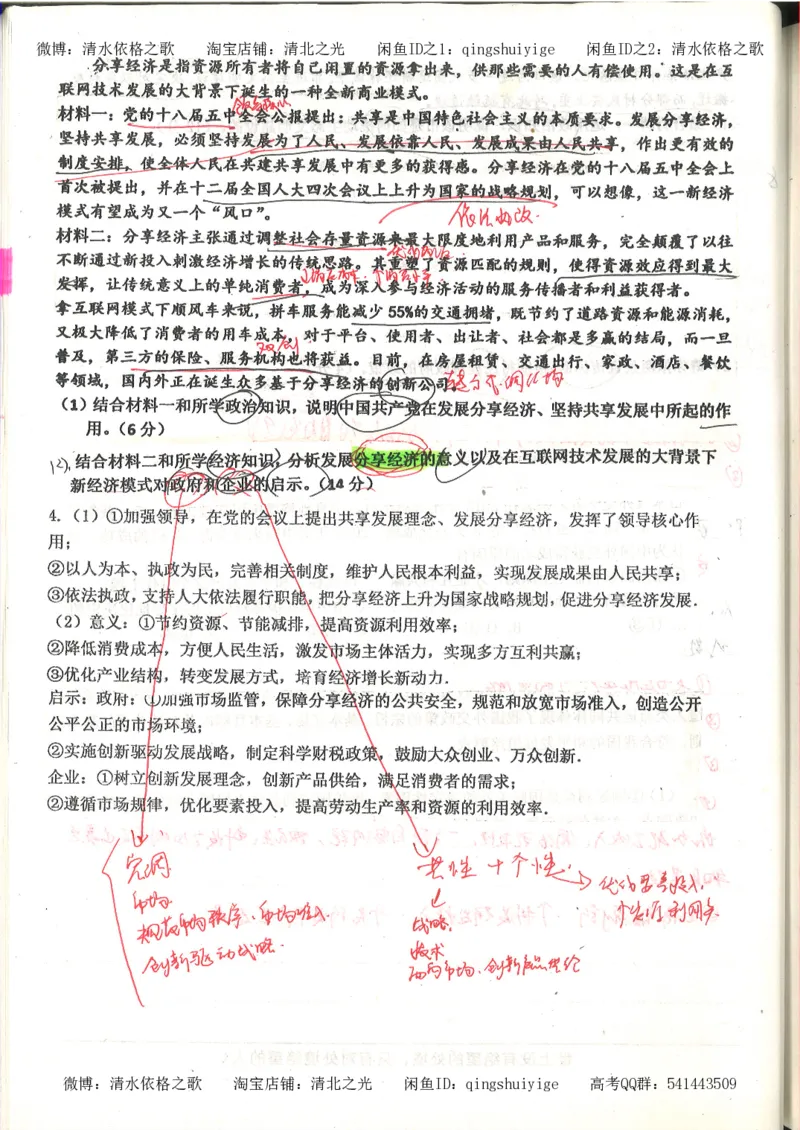 微博：清水依格之歌 淘宝店铺：清北之光 闲鱼ID之1：qingshuiyige 闲鱼ID之2：清水依格之歌
分享经济是指资源所有者将自己闲置的资源拿出来，供那些需要的人有偿使用。这是在互
联网技术发展的大背景下诞生的一种全新商业模式。
材料一：党的十八届五中全会公报提出：共享是中国特色社会主义的本质要求。发展分享经济，
坚持共享发展，必须坚持发展为了人民、发展依靠人民、发展成果由人民共享，作出更有效的
制度安排，使全体人民在共建共享发展中有更多的获得感。分享经济在党的十八届五中全会上
首次被提出，并在十二届全国人大四次会议上上升为国家的战略规划，可以想像，这一新经济
模式有望成为又一个“风口”。
材料二：分享经济主张通过调整社会存量资源来最大限度地利用产品和服务，完全颠覆了以往
不断通过新投入刺激经济增长的传统思路。其重塑了资源匹配的规则，使得资源效应得到最大
发挥，让传统意义上的单纯消费者，成为深入参与经济活动的服务传播者和利益获得者。
拿互联网模式下顺风车来说，拼车服务能减少 55%的交通拥堵，既节约了道路资源和能源消耗，
又极大降低了消费者的用车成本，对于平台、使用者、出让者、社会都是多赢的结局，而一旦
普及，第三方的保险、服务机构也将获益。目前，在房屋租赁、交通出行、家政、酒店、餐饮
等领域，国内外正在诞生众多基于分享经济的创新公司。
（1）结合材料一和所学政治知识，说明中国共产党在发展分享经济、坚持共享发展中所起的作
用。（6 分）
结合材料二和所学经济知识，分析发展分享经济的意义以及在互联网技术发展的大背景下
新经济模式对政府和企业的启示。（14 分）
4.（1）①加强领导，在党的会议上提出共享发展理念、发展分享经济，发挥了领导核心作
用；
②以人为本、执政为民，完善相关制度，维护人民根本利益，实现发展成果由人民共享；
③依法执政，支持人大依法履行职能，把分享经济上升为国家战略规划，促进分享经济发展．
（2）意义：①节约资源、节能减排，提高资源利用效率；
②降低消费成本，方便人民生活，激发市场主体活力，实现多方互利共赢；
③优化产业结构，转变发展方式，培育经济增长新动力．
启示：政府：①加强市场监管，保障分享经济的公共安全，规范和放宽市场准入，创造公开
公平公正的市场环境；
②实施创新驱动发展战略，制定科学财税政策，鼓励大众创业、万众创新．
企业：①树立创新发展理念，创新产品供给，满足消费者的需求；
②遵循市场规律，优化要素投入，提高劳动生产率和资源的利用效率．
宏调
市场
规范市场秩序、市场准入
创新驱动战略．
共性 十 个性
战略
技术
微博：清水依格之歌 淘宝店铺：清北之光 闲鱼ID：qingshuiyige 高考QQ群：541443509